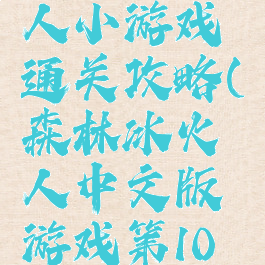 人小游戏
通关攻略(
森林冰火
人中文版
游戏第10